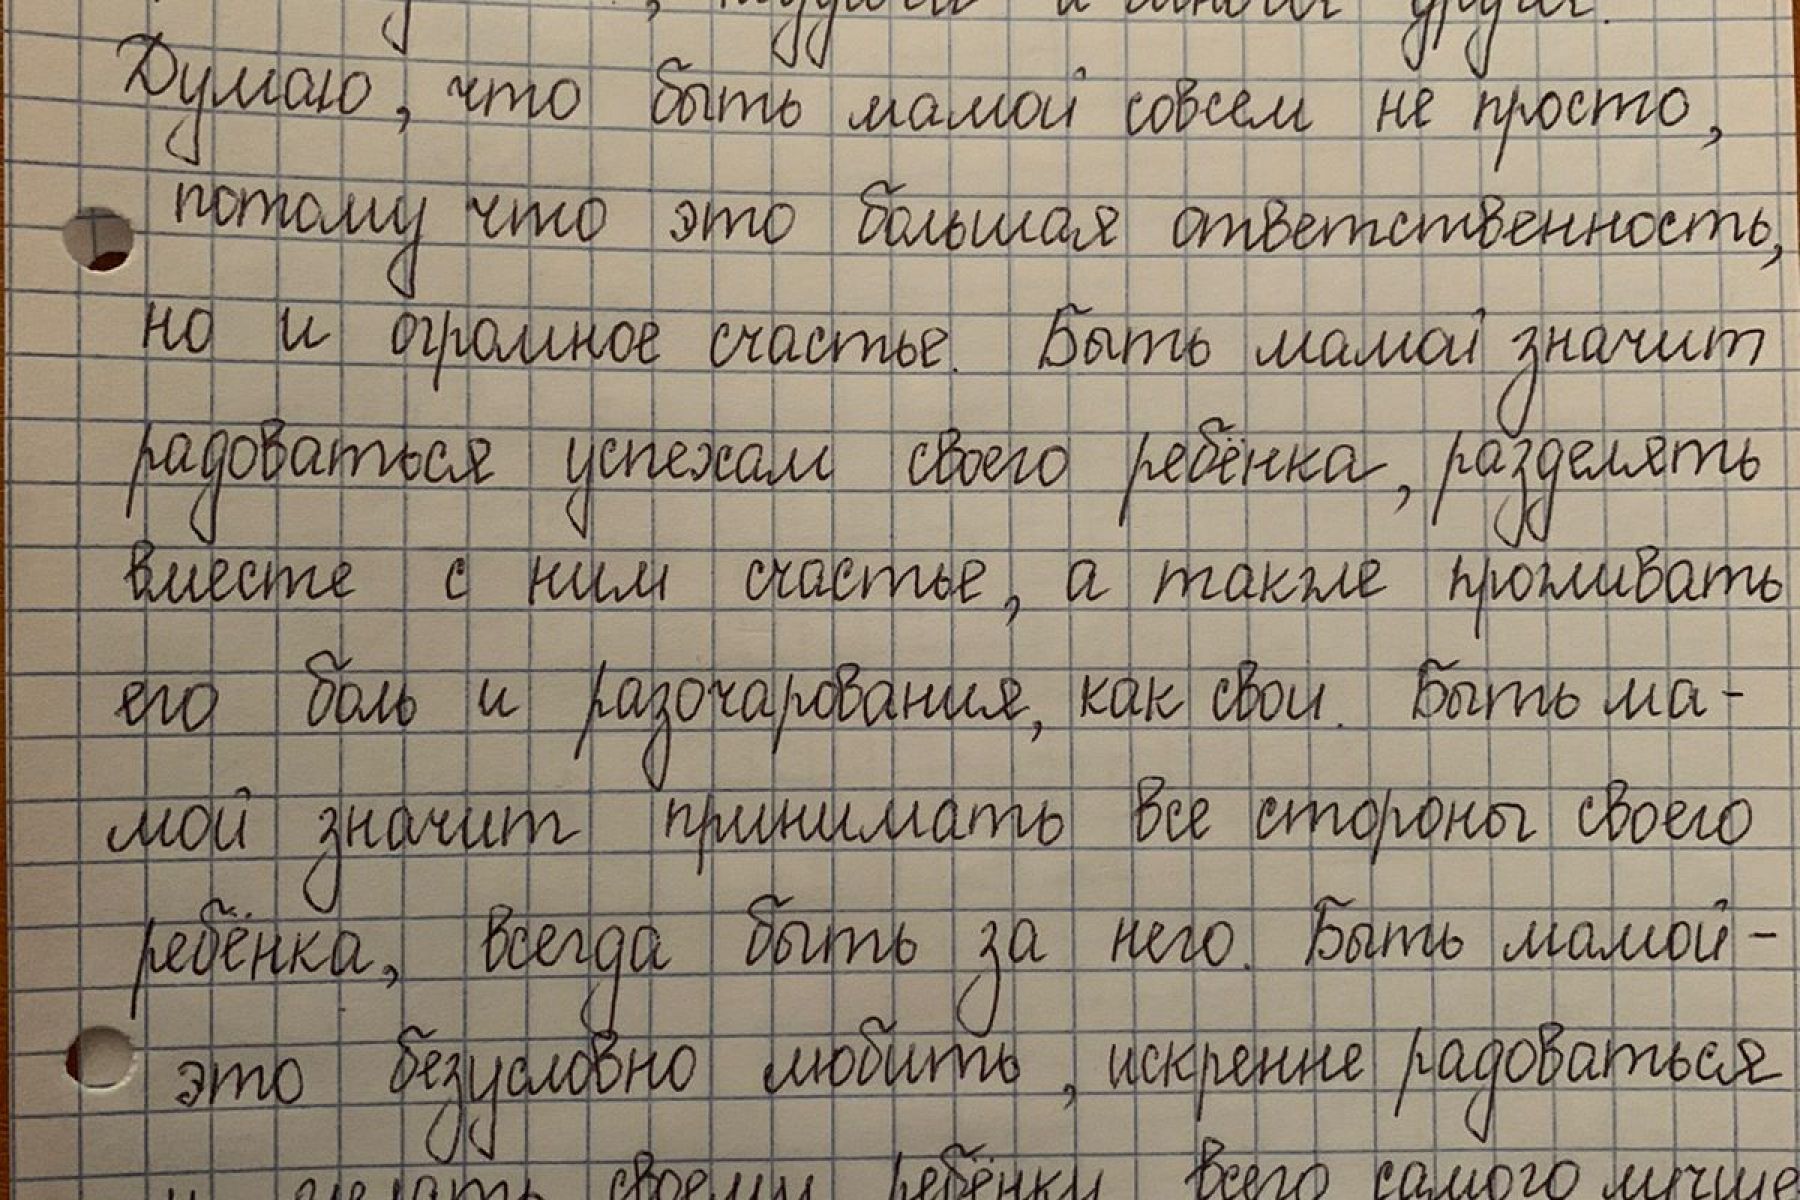 и многих других.
Думаю, что быть мамой совсем не просто,
потому что это большая ответственность,
но и огромное счастье. Быть мамой значит
радоваться успехам своего ребёнка, разделять
вместе с ним счастье, а также проживать
его боль и разочарования, как свои. Быть ма-
мой значит принимать все стороны своего
ребёнка, всегда быть за него. Быть мамой -
это безусловно любить, искренне радоваться
и желать своему ребёнку всего самого лучше